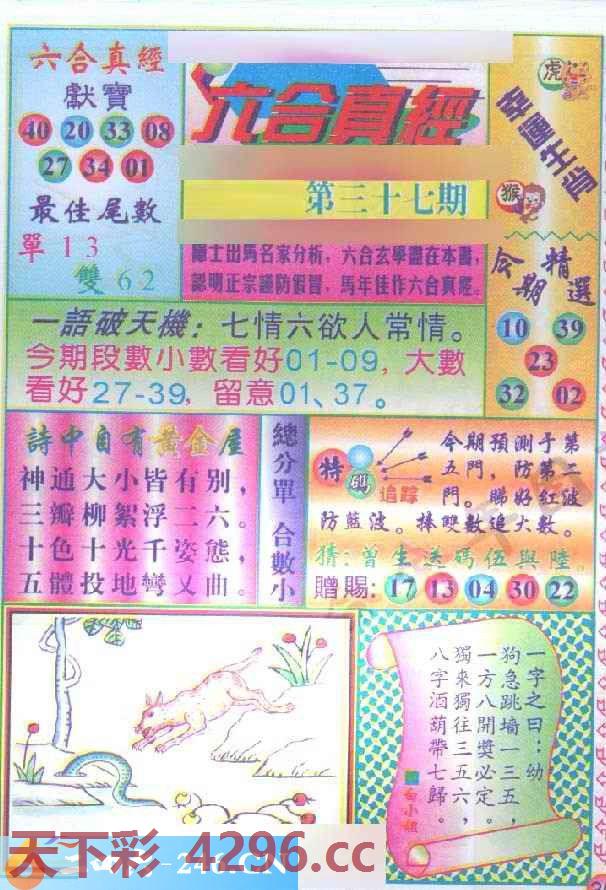 六合真經
獻寶
40 20 33 08
27 34 01
最佳尾數
單13
雙62
六合真經
第三十七期
隱士出馬名家分析，六合玄學盡在本書，
認明正宗謹防假冒，馬年佳作六合真經。
虎
幸運生肖
猴
今期精選
10 39
23
32 02
一語破天機：七情六欲人常情。
今期段數小數看好01-09，大數
看好27-39，留意01、37。
詩中自有黃金屋
神通大小皆有別，
三瓣柳絮浮二六。
十色十光千姿態，
五體投地彎又曲。
總分單 合數小
特碼追踪
今期預測于第
五門，防第二
門。睇好紅波
防藍波。捧雙數追大數。
猜：曾生送碼伍與陸。
贈賜：17 13 04 30 22
一字之曰：幼
狗急跳墙一三五，
一方八開獎必定。
獨來獨往三五六，
八字酒葫帶七歸。
白小姐
天下彩 4296.cc